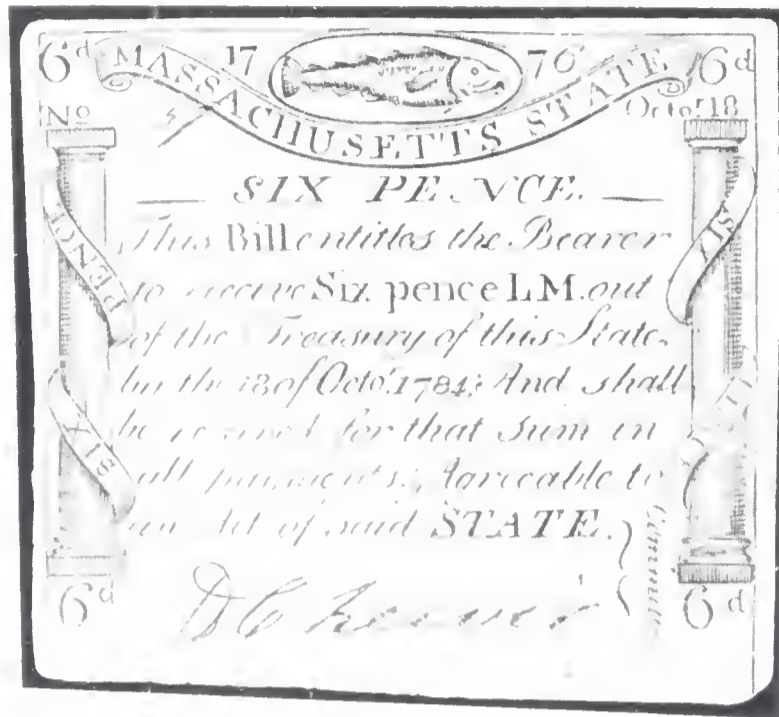 6d 17 76 6d
MASSACHUSETTS STATE
No Octo.r 18
SIX PENCE.
This Bill entitles the Bearer
to receive Six pence L.M. out
of the Treasury of this State,
by the 18 of Octo.r 1784; And shall
be received for that Sum in
all payments, Agreeable to
an Act of said STATE.
PENCE
SIX
SIX
D Cheever
Committee
6d 6d